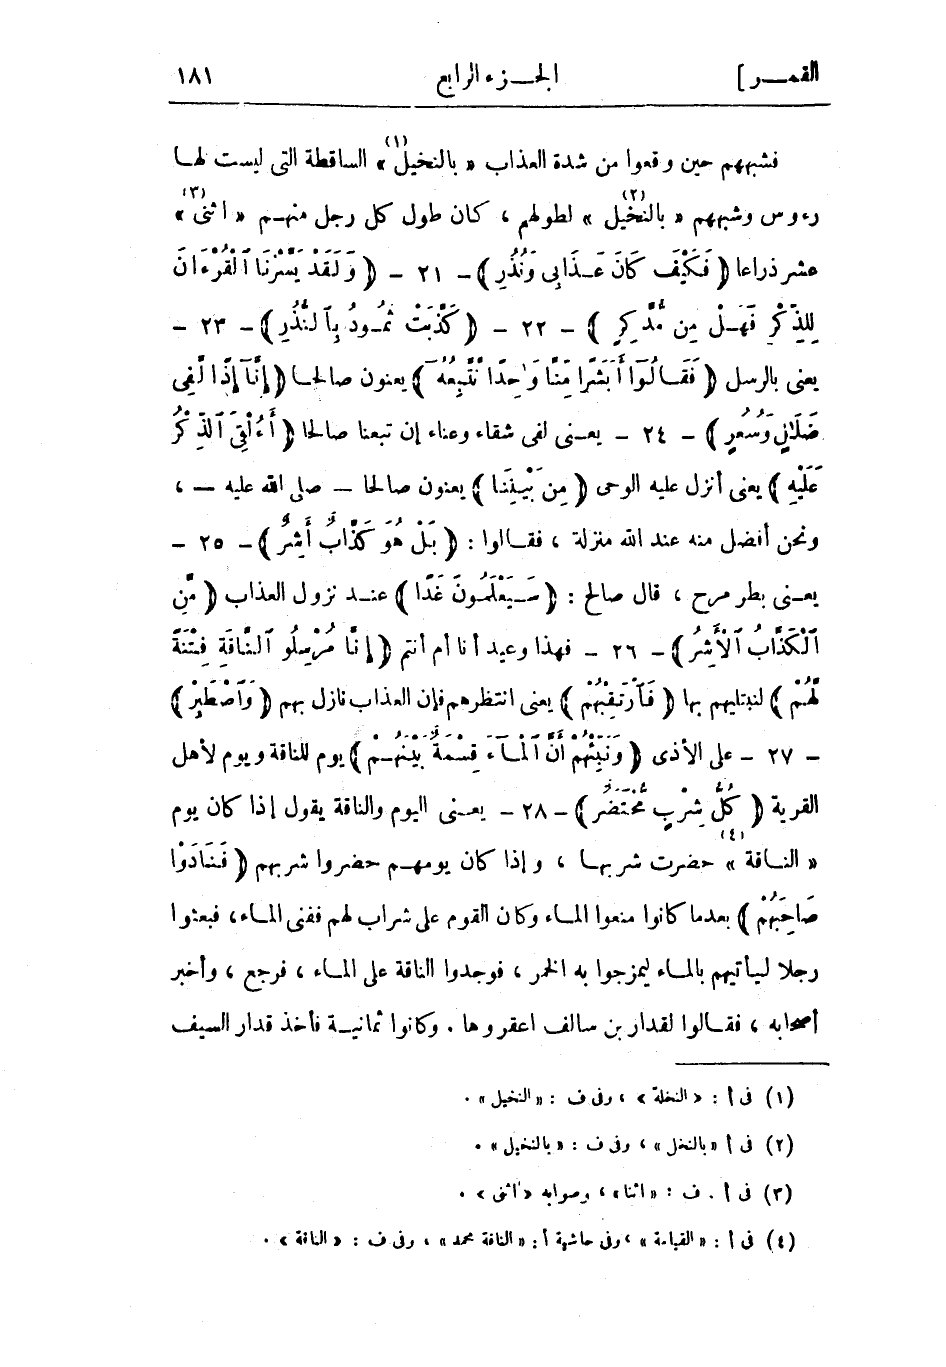 القمر ] الجزء الرابع ١٨١
فشبههم حين وقعوا من شدة العذاب « بالنخيل(١) » الساقطة التى ليست لها
رءوس وشبههم « بالنخيل(٢) » لطولهم ، كان طول كل رجل منهم « اثنى(٣) »
عشر ذراعا ﴿ فَكَيْفَ كَانَ عَذَابِى وَنُذُرِ ﴾ - ٢١ - ﴿ وَلَقَدْ يَسَّرْنَا ٱلْقُرْءَانَ
لِلذِّكْرِ فَهَلْ مِن مُّدَّكِرٍ ﴾ - ٢٢ - ﴿ كَذَّبَتْ ثَمُودُ بِٱلنُّذُرِ ﴾ - ٢٣ -
يعنى بالرسل ﴿ فَقَالُوٓا أَبَشَرًا مِّنَّا وَٰحِدًا نَّتَّبِعُهُٓ ﴾ يعنون صالحا ﴿ إِنَّآ إِذًا لَّفِى
ضَلَٰلٍ وَسُعُرٍ ﴾ - ٢٤ - يعنى لفى شقاء وعناء إن تبعنا صالحا ﴿ أَءُلْقِىَ ٱلذِّكْرُ
عَلَيْهِ ﴾ يعنى أنزل عليه الوحى ﴿ مِن بَيْنِنَا ﴾ يعنون صالحا - صلى الله عليه - ،
ونحن أفضل منه عند الله منزلة ، فقالوا : ﴿ بَلْ هُوَ كَذَّابٌ أَشِرٌ ﴾ - ٢٥ -
يعنى بطر مرح ، قال صالح : ﴿ سَيَعْلَمُونَ غَدًا ﴾ عند نزول العذاب ﴿ مَّنِ
ٱلْكَذَّابُ ٱلْأَشِرُ ﴾ - ٢٦ - فهذا وعيد أنا أم أنتم ﴿ إِنَّا مُرْسِلُو ٱلنَّاقَةِ فِتْنَةً
لَّهُمْ ﴾ لنبتليهم بها ﴿ فَٱرْتَقِبْهُمْ ﴾ يعنى انتظرهم فإن العذاب نازل بهم ﴿ وَٱصْطَبِرْ ﴾
- ٢٧ - على الأذى ﴿ وَنَبِّئْهُمْ أَنَّ ٱلْمَآءَ قِسْمَةٌ بَيْنَهُمْ ﴾ يوم للناقة ويوم لأهل
القرية ﴿ كُلُّ شِرْبٍ مُّحْتَضَرٌ ﴾ - ٢٨ - يعنى اليوم والناقة يقول إذا كان يوم
« الناقة(٤) » حضرت شربها ، وإذا كان يومهم حضروا شربهم ﴿ فَنَادَوْا
صَاحِبَهُمْ ﴾ بعدما كانوا منعوا الماء وكان القوم على شراب لهم ففنى الماء ، فبعثوا
رجلا ليأتيهم بالماء ليمزجوا به الخمر ، فوجدوا الناقة على الماء ، فرجع ، وأخبر
أصحابه ، فقالوا لقدار بن سالف اعقروها . وكانوا ثمانية فأخذ قدار السيف
(١) فى أ : « النخلة » ، وفى ف : « النخيل » .
(٢) فى أ « بالنخل » ، وفى ف : « بالنخيل » .
(٣) فى أ . ف : « اثنا » ، وصوابه « اثنى » .
(٤) فى أ : « القيامة » ، وفى حاشية أ : « الناقة محمد » ، وفى ف : « الناقة » .